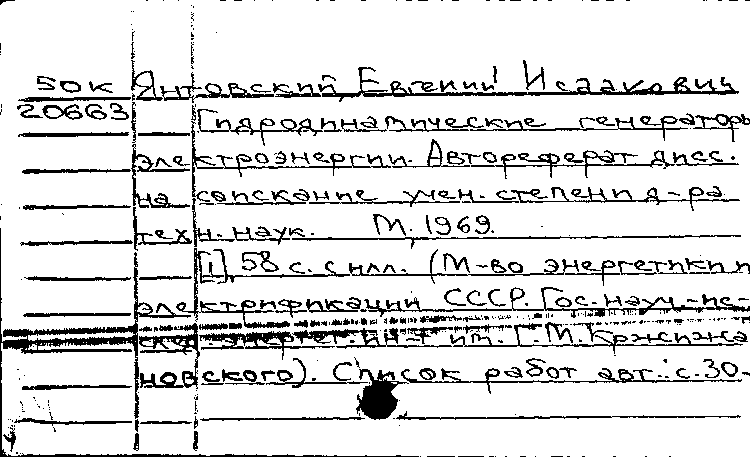 50к Янтовский, Евгений Исаакович
20663 Гидродинамические генераторы
электроэнергии. Автореферат дисс.
на соискание учен. степени д-ра
техн. наук. М, 1969.
[1], 58 с. с илл. (М-во энергетики и
электрификации СССР. Гос. науч.-ис-
след. энергет. ин-т им. Г. М. Кржижа
новского). Список работ авт.: с. 30-